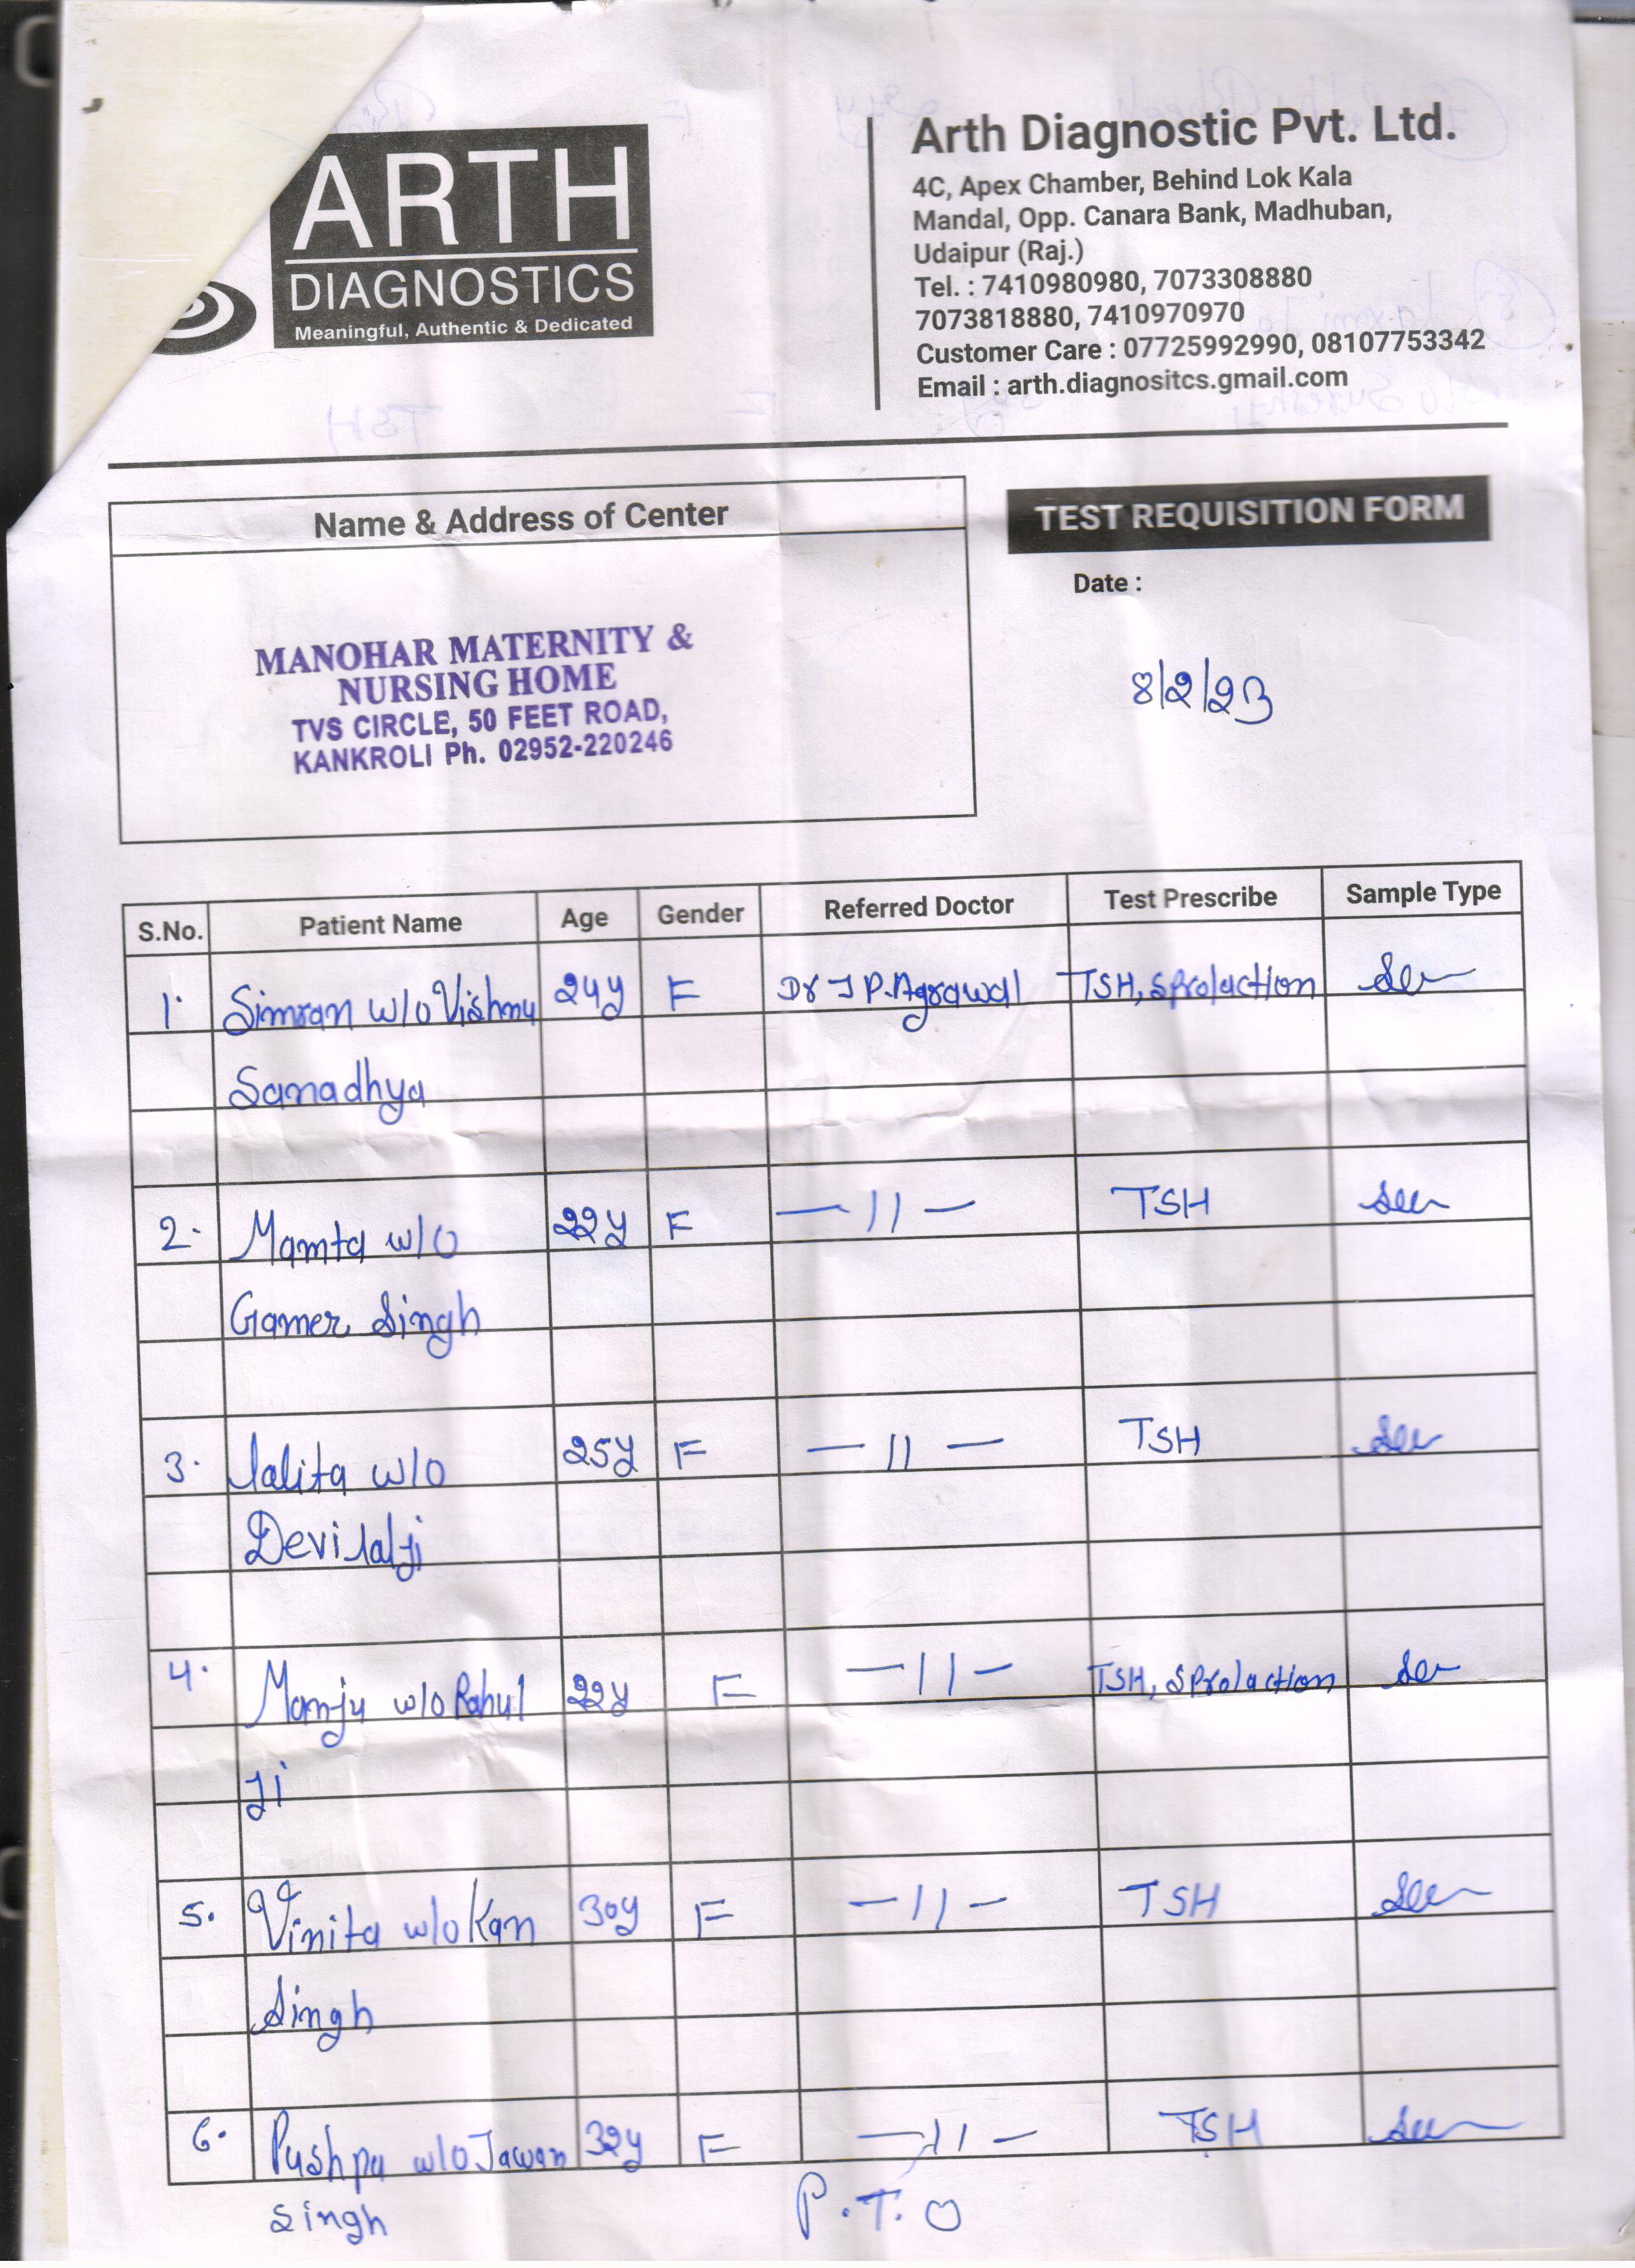 ARTH
DIAGNOSTICS
Meaningful, Authentic & Dedicated
Arth Diagnostic Pvt. Ltd.
4C, Apex Chamber, Behind Lok Kala
Mandal, Opp. Canara Bank, Madhuban,
Udaipur (Raj.)
Tel. : 7410980980, 7073308880
7073818880, 7410970970
Customer Care : 07725992990, 08107753342
Email : arth.diagnositcs.gmail.com
Name & Address of Center
TEST REQUISITION FORM
Date :
8/2/23
MANOHAR MATERNITY &
NURSING HOME
TVS CIRCLE, 50 FEET ROAD,
KANKROLI Ph. 02952-220246
S.No. Patient Name Age Gender Referred Doctor Test Prescribe Sample Type
1. Simran w/o Vishnu 24y F Dr J P. Agrawal TSH, S prolaction
Sanadhya
2. Mamta w/o 22y F —11— TSH
Gamer Singh
3. lalita w/o 25y F —11— TSH
Devilalji
4. Manju w/o Rahul 22y F —11— TSH, S prolaction
Ji
5. Vinita w/o Kan 30y F —11— TSH
Singh
6. Pushpa w/o Jawan 32y F —11— TSH
Singh
P.T.O